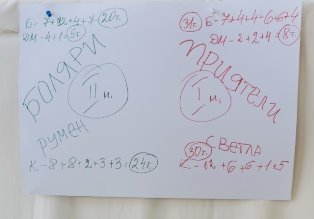 Б-7+2+4+7 20т.
ДМ-4+1 5т.
БОЛЯРИ
II м.
РУМЕН
К-8+8+2+3+3= 24т.
31т. Б-7+4+4+6+6+4
ДМ-2+2+4= 8т.
ПРИЯТЕЛИ
I м.
СВЕТЛА
30т.
К-12+6+6+1+5